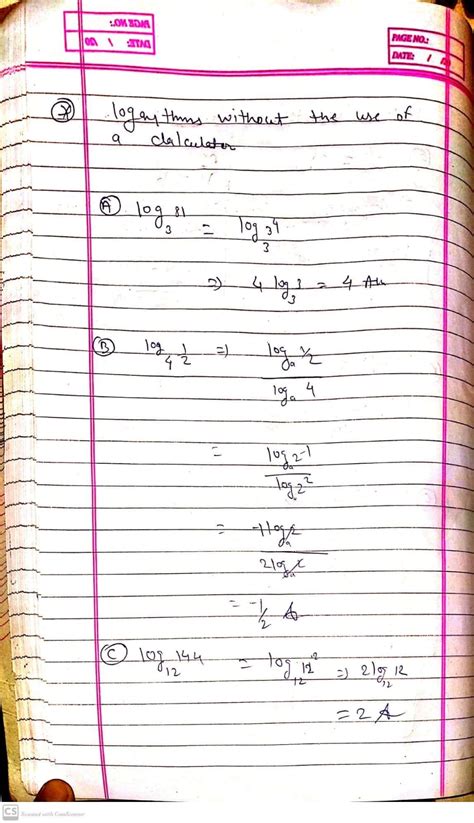 PAGE NO.:
DATE: / /20
PAGE NO.:
DATE: /
logaythms without the use of
a calculator
(A) log₃ 81 = log₃ 3⁴
⇒ 4 log₃ 3 = 4 Ans
(B) log₄ 1/2 ⇒ logₐ 1/2 / logₐ 4
= logₐ 2⁻¹ / logₐ 2²
= -1 logₐ 2 / 2 logₐ 2
= -1/2 A
(C) log₁₂ 144 = log₁₂ 12² ⇒ 2 log₁₂ 12
= 2 A
CS Scanned with CamScanner